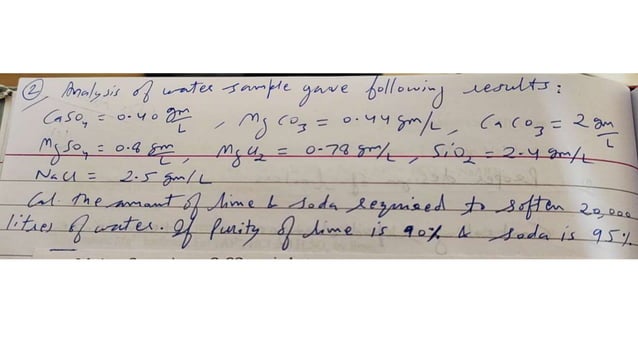 ② Analysis of water sample gave following results:
CaSO4 = 0.40 gm/L, MgCO3 = 0.44 gm/L, CaCO3 = 2 gm/L
MgSO4 = 0.8 gm/L, MgCl2 = 0.78 gm/L, SiO2 = 2.4 gm/L
NaCl = 2.5 gm/L
Cal. the amount of lime & soda required to soften 20,000
litres of water. If Purity of lime is 90% & soda is 95%.